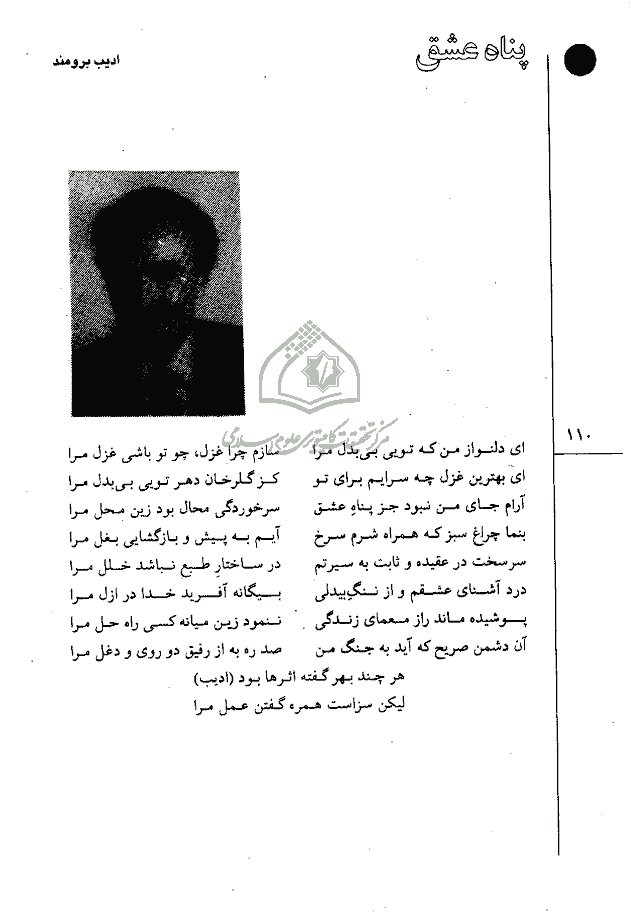 پناه عشق
ادیب برومند
۱۱۰
مرکز تحقیقات کامپیوتری علوم اسلامی
ای دلنواز من که تویی بی‌بدل مرا سازم چرا غزل، چو تو باشی غزل مرا
ای بهترین غزل چه سرایم برای تو کز گلرخان دهر تویی بی‌بدل مرا
آرام جای من نبود جز پناهِ عشق سرخوردگی محال بود زین محل مرا
بنما چراغ سبز که همراه شرم سرخ آیم به پیش و بازگشایی بغل مرا
سرسخت در عقیده و ثابت به سیرتم در ساختارِ طبع نباشد خلل مرا
درد آشنای عشقم و از ننگِ‌بیدلی بیگانه آفرید خدا در ازل مرا
پوشیده ماند راز معمای زندگی ننمود زین میانه کسی راه حل مرا
آن دشمن صریح که آید به جنگ من صد ره به از رفیق دو روی و دغل مرا
هر چند بهر گفته اثرها بود (ادیب)
لیکن سزاست همره گفتن عمل مرا